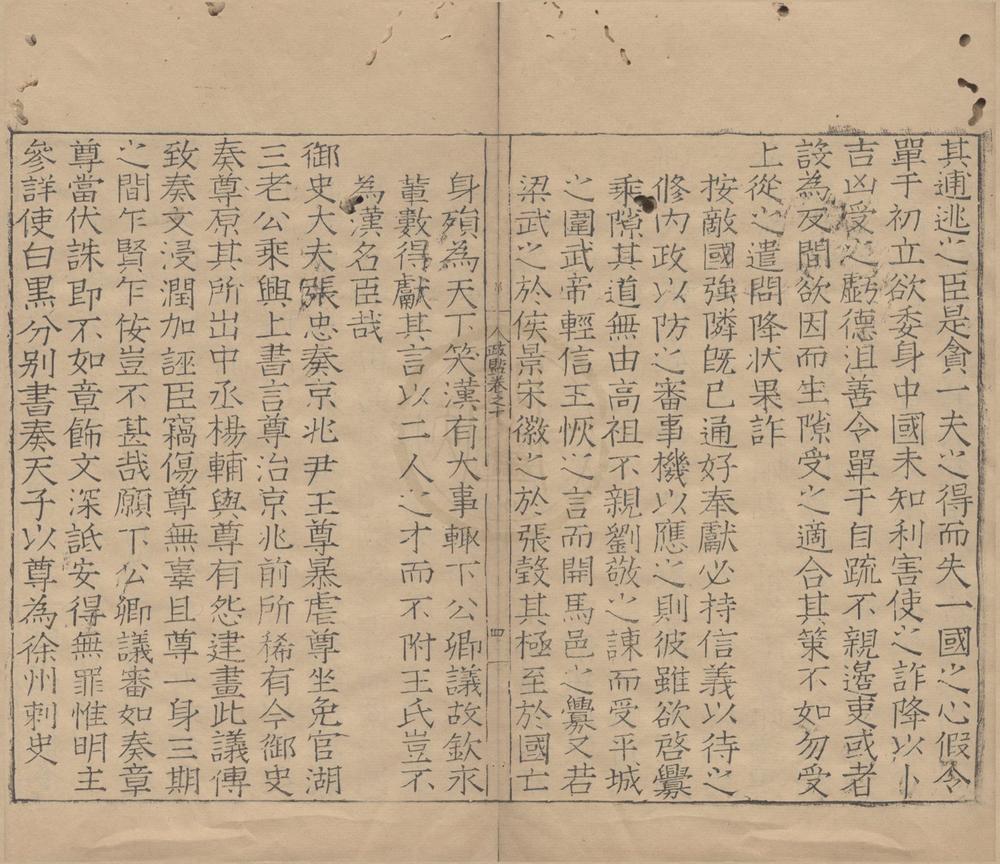 其逋逃之臣是貪一夫之得而失一國之心假令
單于初立欲委身中國未知利害使之詐降以卜
吉凶受之虧德沮善令單于自疏不親邊吏或者
設為反間欲因而生隙受之適合其策不如勿受
上從之遣問降状果詐
按敵國強隣旣已通好奉獻必持信義以待之
修内政以防之審事機以應之則彼雖欲啓釁
乘隙其道無由高祖不親劉敬之諫而受平城
之圍武帝輕信王恢之言而開馬邑之釁又若
梁武之於侯景宋徽之於張瑴其極至於國亡
人政監卷之十
四
身殞為天下笑漢有大事輙下公卿議故欽永
輩數得獻其言以二人之才而不附王氏豈不
為漢名臣哉
御史大夫張忠奏京兆尹王尊暴虐尊坐免官湖
三老公乘興上書言尊治京兆前所稀有今御史
奏尊原其所出中丞楊輔與尊有怨建畫此議傳
致奏文浸潤加誣臣竊傷尊無辜且尊一身三期
之間乍賢乍佞豈不甚哉願下公卿議審如奏章
尊當伏誅即不如章飾文深詆安得無罪惟明主
參詳使白黒分别書奏天子以尊為徐州刺史